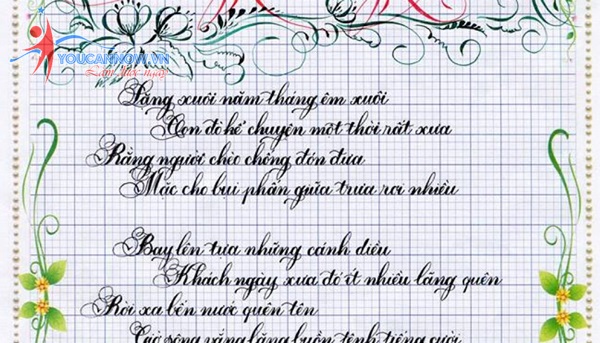 YOUCANNOW.VN
Làm được ngay
Lặng xuôi năm tháng êm xuôi
Con đò kể chuyện một thời rất xưa
Rằng người chèo chống đón đưa
Mặc cho bụi phấn giữa trưa rơi nhiều
Bay lên tựa những cánh diều
Khách ngày xưa đó ít nhiều lãng quên
Rời xa bến nước quên tên
Giờ sông vắng lặng buồn tênh tiếng cười